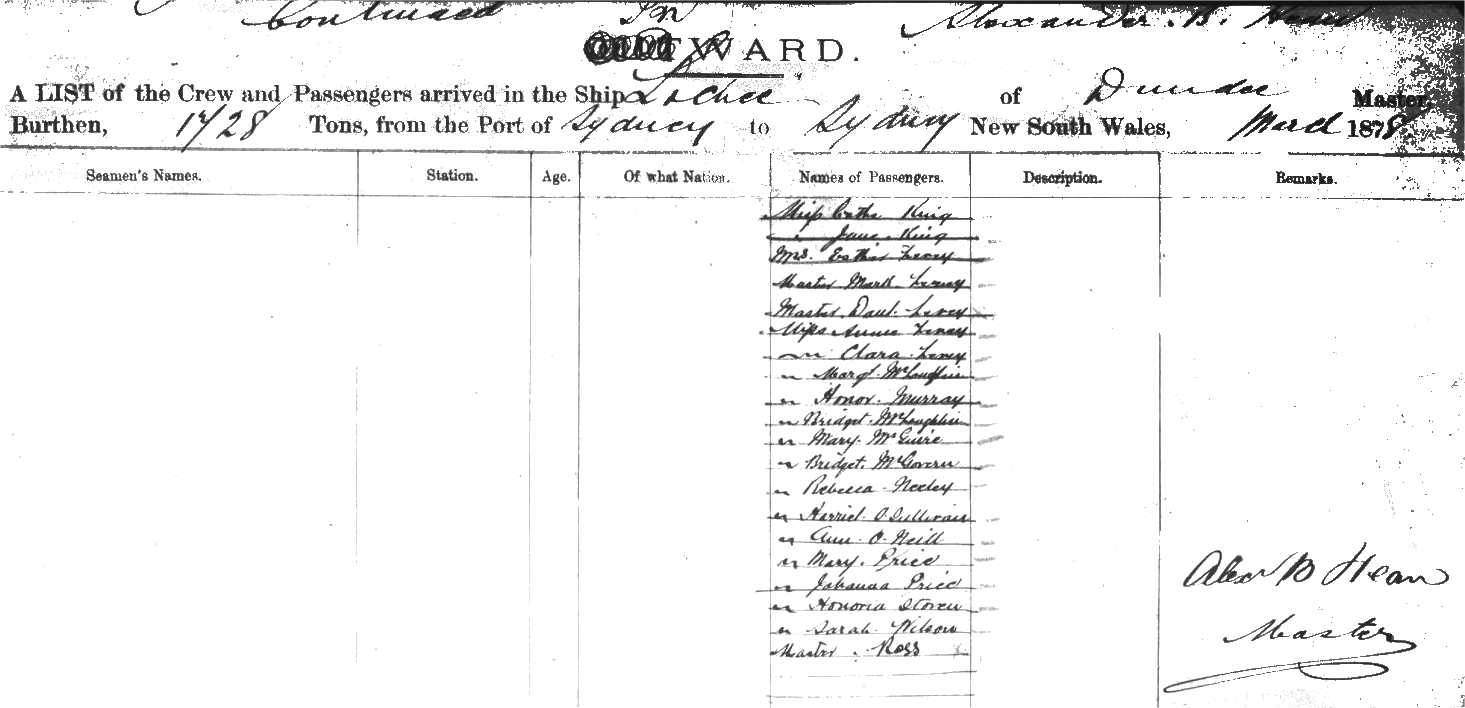 Continued In Alexander. B. Hean
OUTWARD.
A LIST of the Crew and Passengers arrived in the Ship Lochee of Dundee Master,
Burthen, 1728 Tons, from the Port of Sydney to Sydney New South Wales, March 1878
Seamen's Names. Station. Age. Of what Nation. Names of Passengers. Description. Remarks.
Miss Cathe King
" Jane. King
Mrs. Esther Levey
Master Mark Levey
Master Danl. Levey
Miss Annie Levey
" Clara Levey
" Margt. McLoughlin
" Honor. Murray
" Bridget. McLoughlin
" Mary. McGuire
" Bridget. McGovern
" Rebecca Neeley
" Harriet O.Sullivan
" Ann. O. Neill
" Mary. Price
" Johanna Price
" Honoria
" Sarah. Wilson
Master . Ross
Alexr B Hean
Master